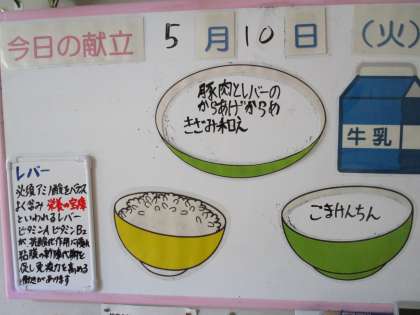 今日の献立 5月10日(火)
豚肉とレバーの
からあげからめ
きざみ和え
牛乳
レバー
必須アミノ酸をバランス
よく含み 栄養の宝庫
といわれるレバー
ビタミンAとビタミンB2
が 抗酸化作用に優れ
粘膜の新陳代謝を
促し免疫力を高める
働きがあります
ごまけんちん